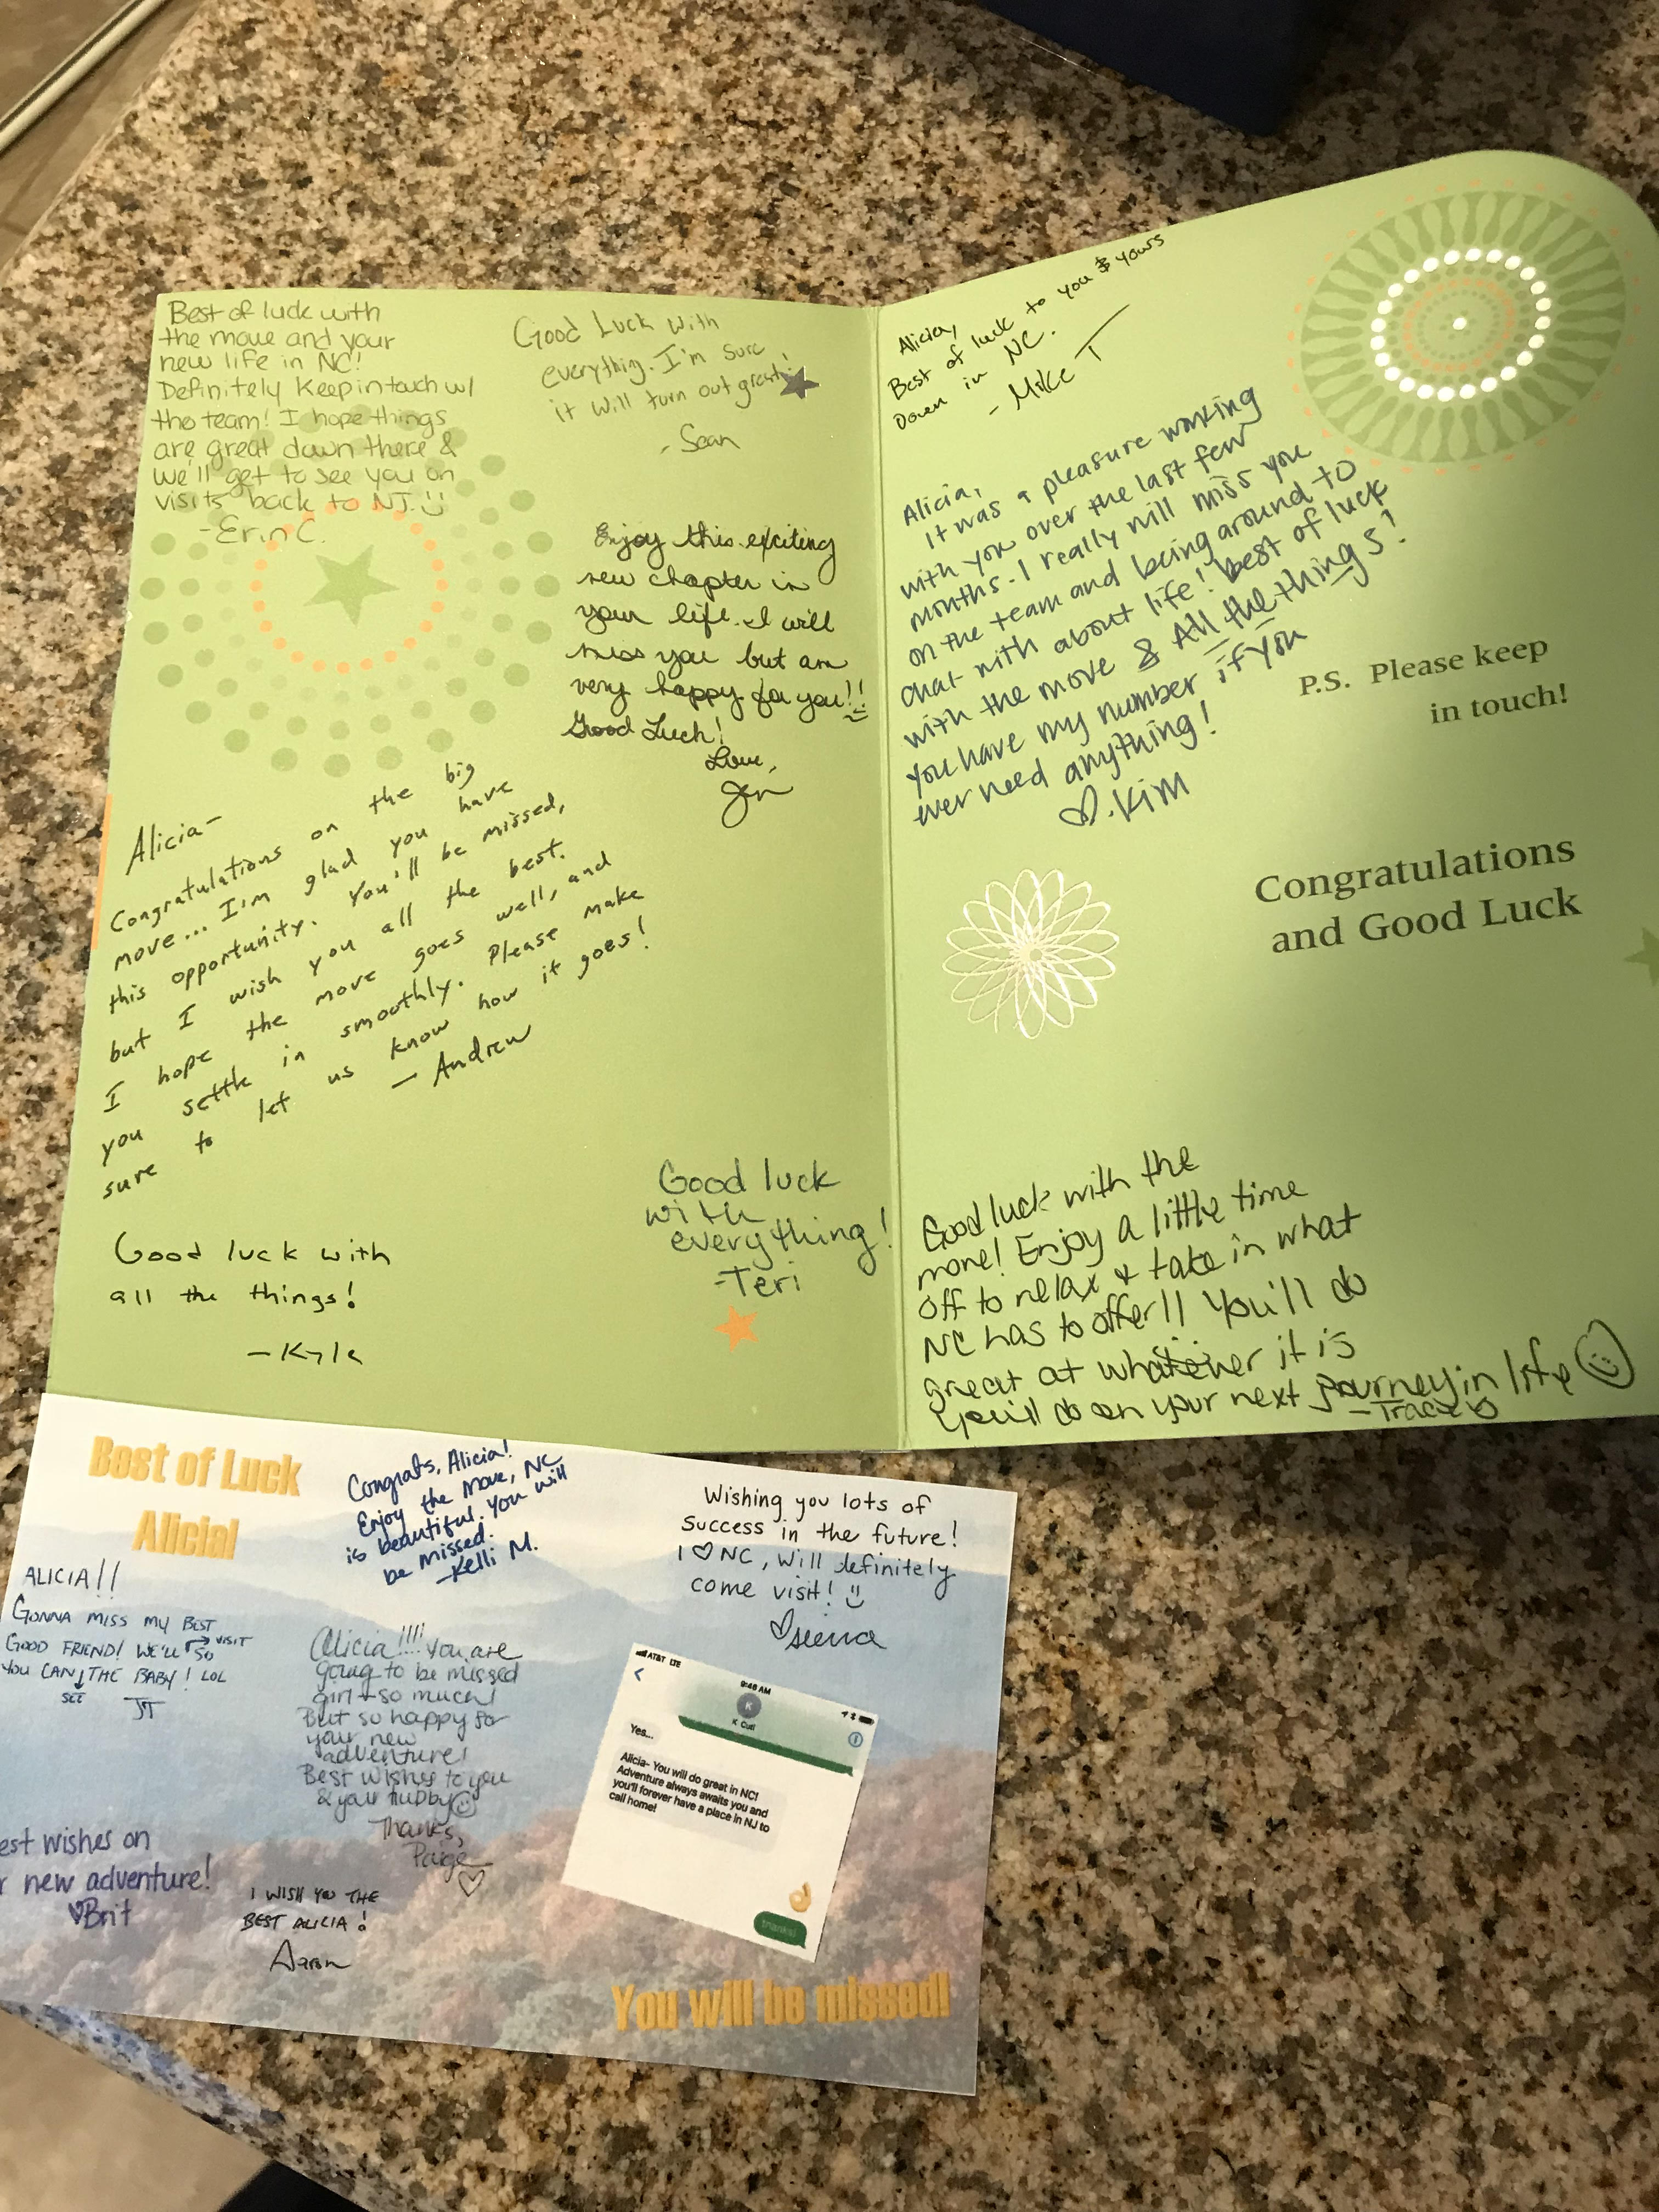 Best of luck with
the move and your
new life in NC!
Definitely Keep in touch w/
the team! I hope things
are great down there &
we'll get to see you on
visits back to NJ. :)
-Erin C.
Good Luck with
everything. I'm sure
it will turn out great!
- Sean
Enjoy this exciting
new chapter in
your life. I will
miss you but am
very happy for you!!
Good Luck!
Love,
Jen
Alicia-
Congratulations on the big
move... I'm glad you have
this opportunity. You'll be missed,
but I wish you all the best.
I hope the move goes well, and
you settle in smoothly. Please make
sure to let us know how it goes!
- Andrew
Good luck with
all the things!
-Kyle
Good luck
with
everything!
-Teri
Alicia,
Best of luck to you & yours
Down in NC.
- Mike T
Alicia,
It was a pleasure working
with you over the last few
months. I really will miss you
on the team and being around to
chat with about life! best of luck
with the move & All the things!
you have my number if you
ever need anything!
♡. Kim
P.S. Please keep
in touch!
Congratulations
and Good Luck
Good luck with the
move! Enjoy a little time
off to relax & take in what
NC has to offer!! You'll do
great at whatever it is
you'll do on your next journey in life
-Tracie
Best of Luck
Alicia!
Congrats, Alicia!
Enjoy the move, NC
is beautiful. You will
be missed.
-Kelli M.
Wishing you lots of
success in the future!
I ♡ NC, will definitely
come visit! :)
♡sierra
ALICIA!!
GONNA MISS MY BEST
GOOD FRIEND! WE'LL VISIT SO
YOU CAN SEE THE BABY! LOL
JT
Alicia!!!! You are
going to be missed
girl - so much!
But so happy for
your new
adventure!
Best wishes to you
& your hubby
Thanks,
Paige
♡
est wishes on
r new adventure!
♥Brit
I WISH YOU THE
BEST ALICIA!
Aaron
AT&T LTE
9:46 AM
K
K Cull
Yes...
Alicia- You will do great in NC!
Adventure always awaits you and
you'll forever have a place in NJ to
call home!
👌
thanks!
You will be missed!